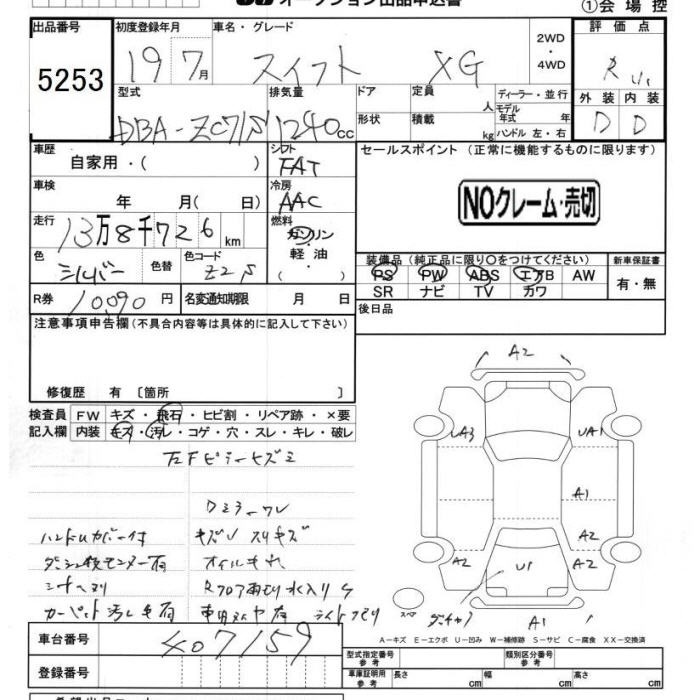 オークション出品申込書
①会場控
出品番号 初度登録年月 車名・グレード 2WD・4WD 評価点
5253 19 7月 スイフト XG R
型式 排気量 ドア 定員 人 ディーラー・並行 外装 内装
DBA-ZC71S 1240 cc 形状 積載 kg モデル年式 年 ハンドル 左・右 D D
車歴 自家用・( ) シフト FAT セールスポイント(正常に機能するものに限ります)
車検 年 月( 日) 冷房 AAC
NOクレーム・売切
走行 13万8千726km 燃料 ガソリン・軽油・( )
色 シルバー 色替 色コード Z2S
装備品(純正品に限り〇をつけてください) 新車保証書
PS PW ABS エアB AW 有・無
SR ナビ TV カワ
R券 10090円 名変通知期限 月 日
後日品
注意事項申告欄(不具合内容等は具体的に記入して下さい)
修復歴 有〔箇所 〕
検査員 FW キズ・飛石・ヒビ割・リペア跡・×要
記入欄 内装 キズ・汚レ・コゲ・穴・スレ・キレ・破レ
左Fピラーキズミ
Dミラーワレ
ハンドルカバー付 キズ スリキズ
オイルモレ
シートスリ Rフロア雨もり水入り
カーペット汚レ毛有 ライトクモリ
A2
UA3 UA1
A1
A2 A2
U1
スペア
A1
A-キズ E-エクボ U-凹み W-補修跡 S-サビ C-腐食 XX-交換済
車台番号 407159
型式指定番号 参考 類別区分番号 参考
登録番号
車庫証明用 参考 長さ cm 幅 cm 高さ cm